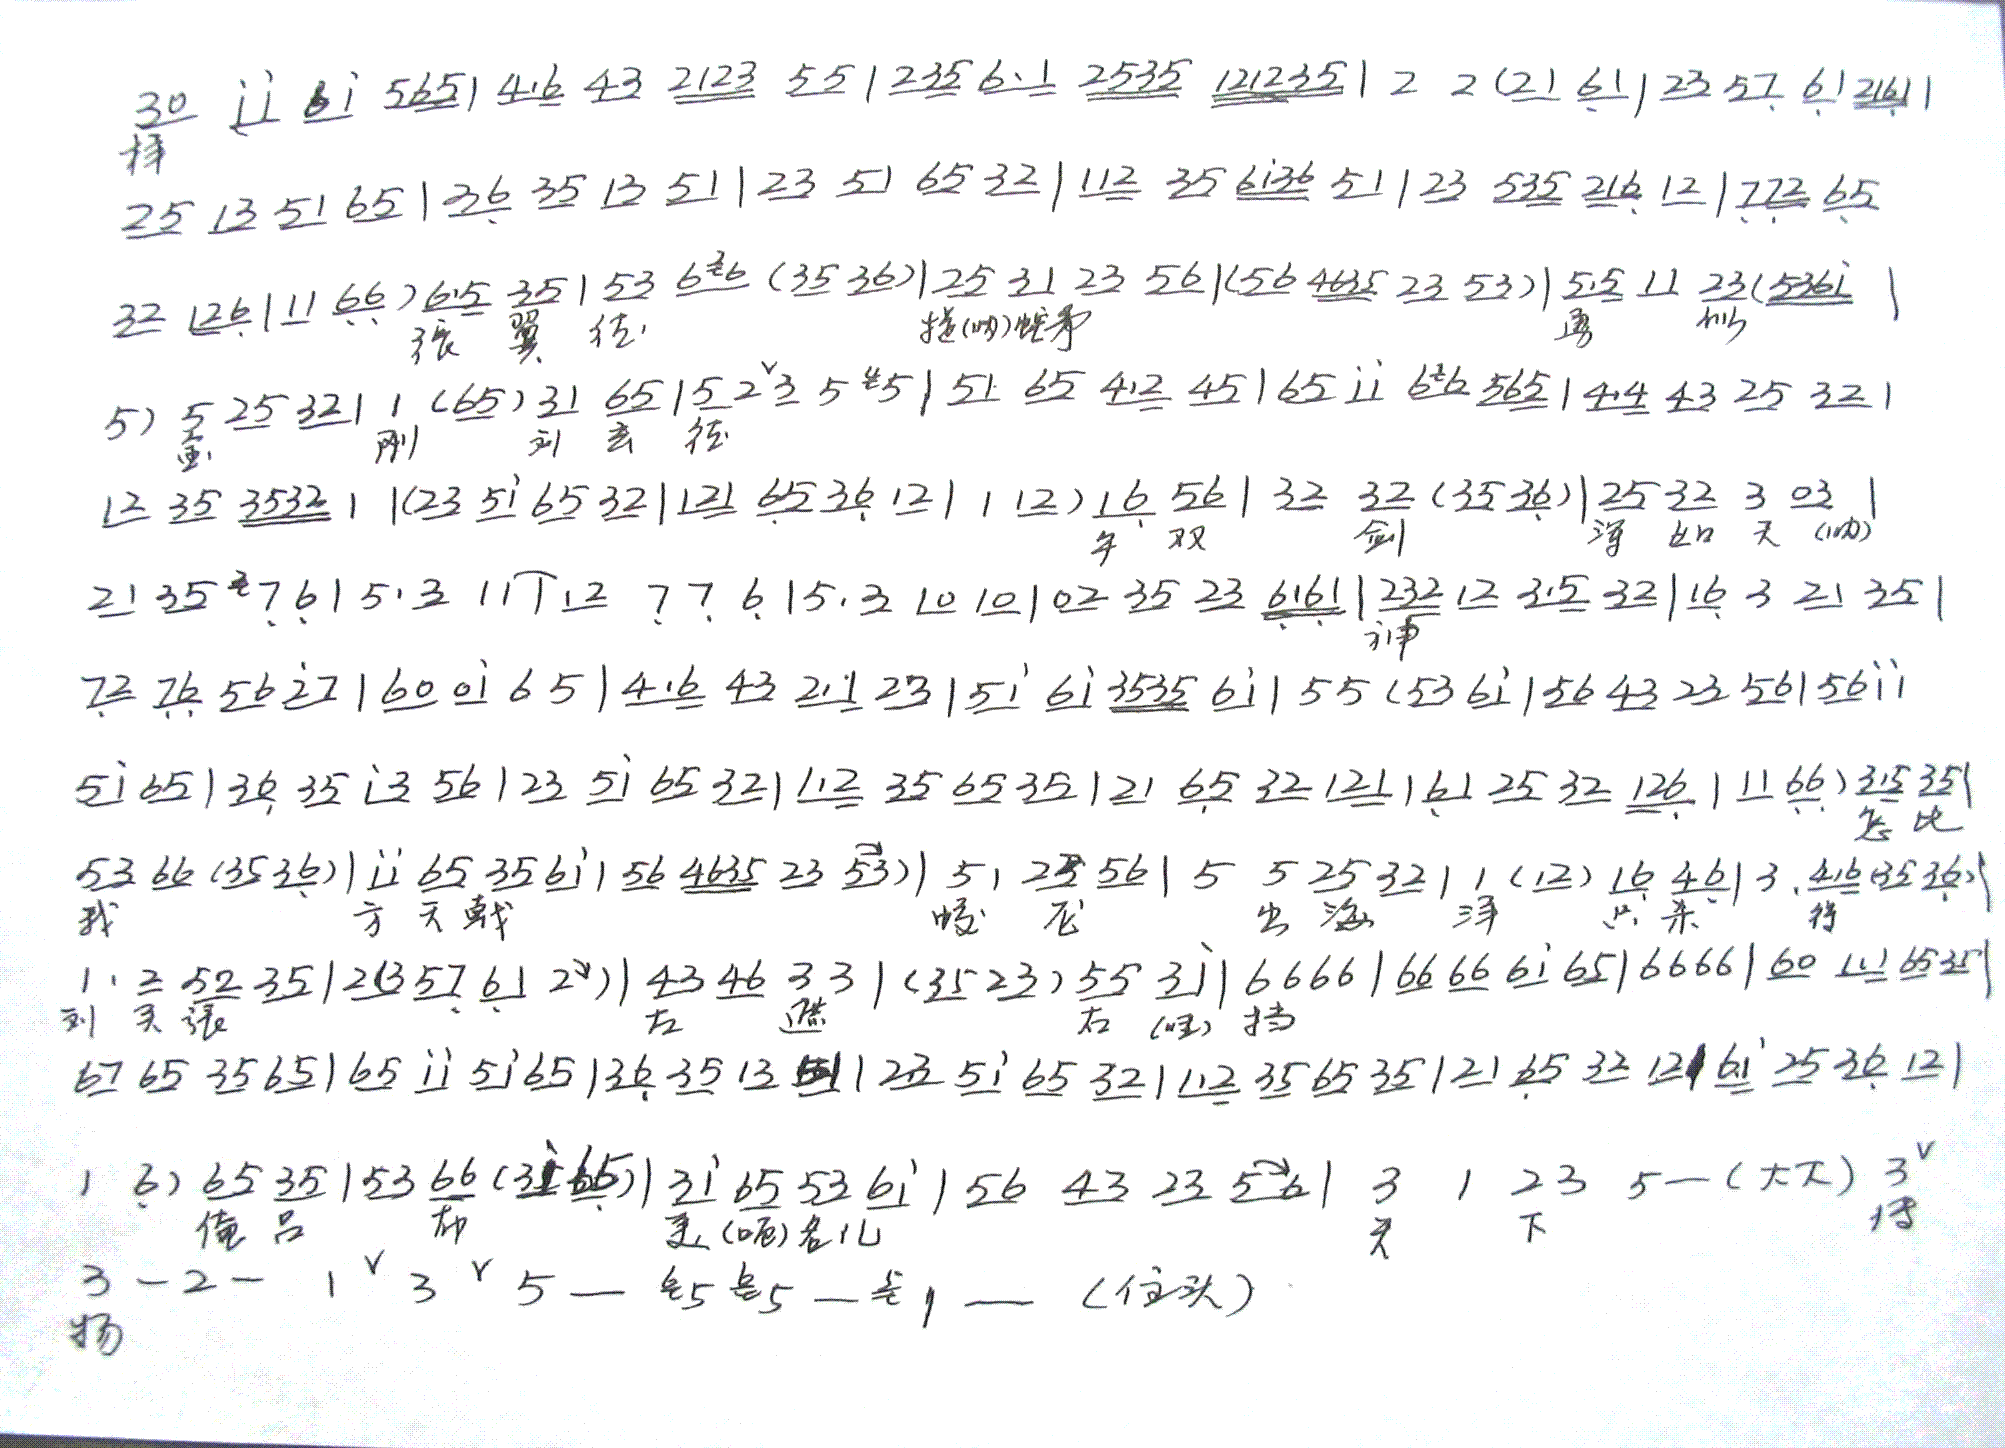 30 i̇i̇ 6i̇ 565 | 4·6 43 2123 55 | 235 6·1 2535 121235 | 2 2 (21 6̣1 | 23 57̣ 6̣1 2161 |
择
25 13 51 65 | 36̣ 35 13 51 | 23 51 65 32 | 112 35 6i̇36 51 | 23 535 216̣ 12 | 7̣7̣2 6̣5
32 126̣ | 11 6̣6̣) 6·5 35 | 53 6 6 (35 36) | 25 31 23 56 | (56 4635 23 53) | 5·5 11 23 (536i̇ |
张 翼 德 (呐) 蛇 矛 勇
5) 5 25 32 | 1 (65) 31 65 | 5 2ˇ3 5 5 | 51 65 4·2 45 | 65 i̇i̇ 6 6 565 | 4·4 43 25 32 |
刚 刘 玄 德
12 35 3532 1 | (23 5i̇ 65 32 | 121 6̣5 36̣ 12 | 1 12) 16̣ 56 | 32 32 (35 36̣) | 25 32 3 03 |
双 剑 浑 如 天 (呐)
21 35 7̣ 6̣ | 5·3 11 | 12 7̣ 7̣ 6̣ | 5·3 10 10 | 02 35 23 6̣16̣1 | 232 12 3·5 32 | 16̣ 3 21 35 |
神
7̣2 7̣6̣ 56 2̇7 | 60 0i̇ 65 | 4·6 43 2·1 23 | 5i̇ 6i̇ 3535 6i̇ | 55 (53 6i̇ | 56 43 23 56 | 56 i̇i̇
5i̇ 65 | 36̣ 35 i̇3 56 | 23 5i̇ 65 32 | 1·2 35 65 35 | 21 6̣5 32 121 | 6̣1 25 32 126̣ | 11 6̣6̣) 3·5 35 |
怎 比
53 66 (35 36̣) | i̇i̇ 65 35 6i̇ | 56 4635 23 53) | 5 1 23 56 | 5 5 25 32 | 1 (12) 16̣ 46̣ | 3· 4·6 (35 36̣) |
我 方 天 戟 蛟 龙 出 海 洋 只 杀 得
1· 2 52 35 | 2 (3 57̣ 6̣1 2) | 43 46 3 3 | (35 23) 55 3i̇ | 6666 | 66 66 6i̇ 65 | 6666 | 60 1·1 6535 |
刘 关 张 左 遮 右 (哇) 挡
67 65 35 65 | 65 i̇i̇ 5i̇ 65 | 36̣ 35 13 51 | 23 5i̇ 65 32 | 1·2 35 65 35 | 21 6̣5 32 12 | 6i̇ 25 36̣ 12 |
1 6̣) 65 35 | 53 66 (35 65) | 3i̇ 65 53 6i̇ | 56 43 23 5 6 | 3 1 23 5 — (大大) 3ˇ
俺 吕 布 美 (呃) 名 儿 天 下 传
3 — 2 — 1ˇ 3ˇ 5 — 5 5 — 1 — (住头)
扬